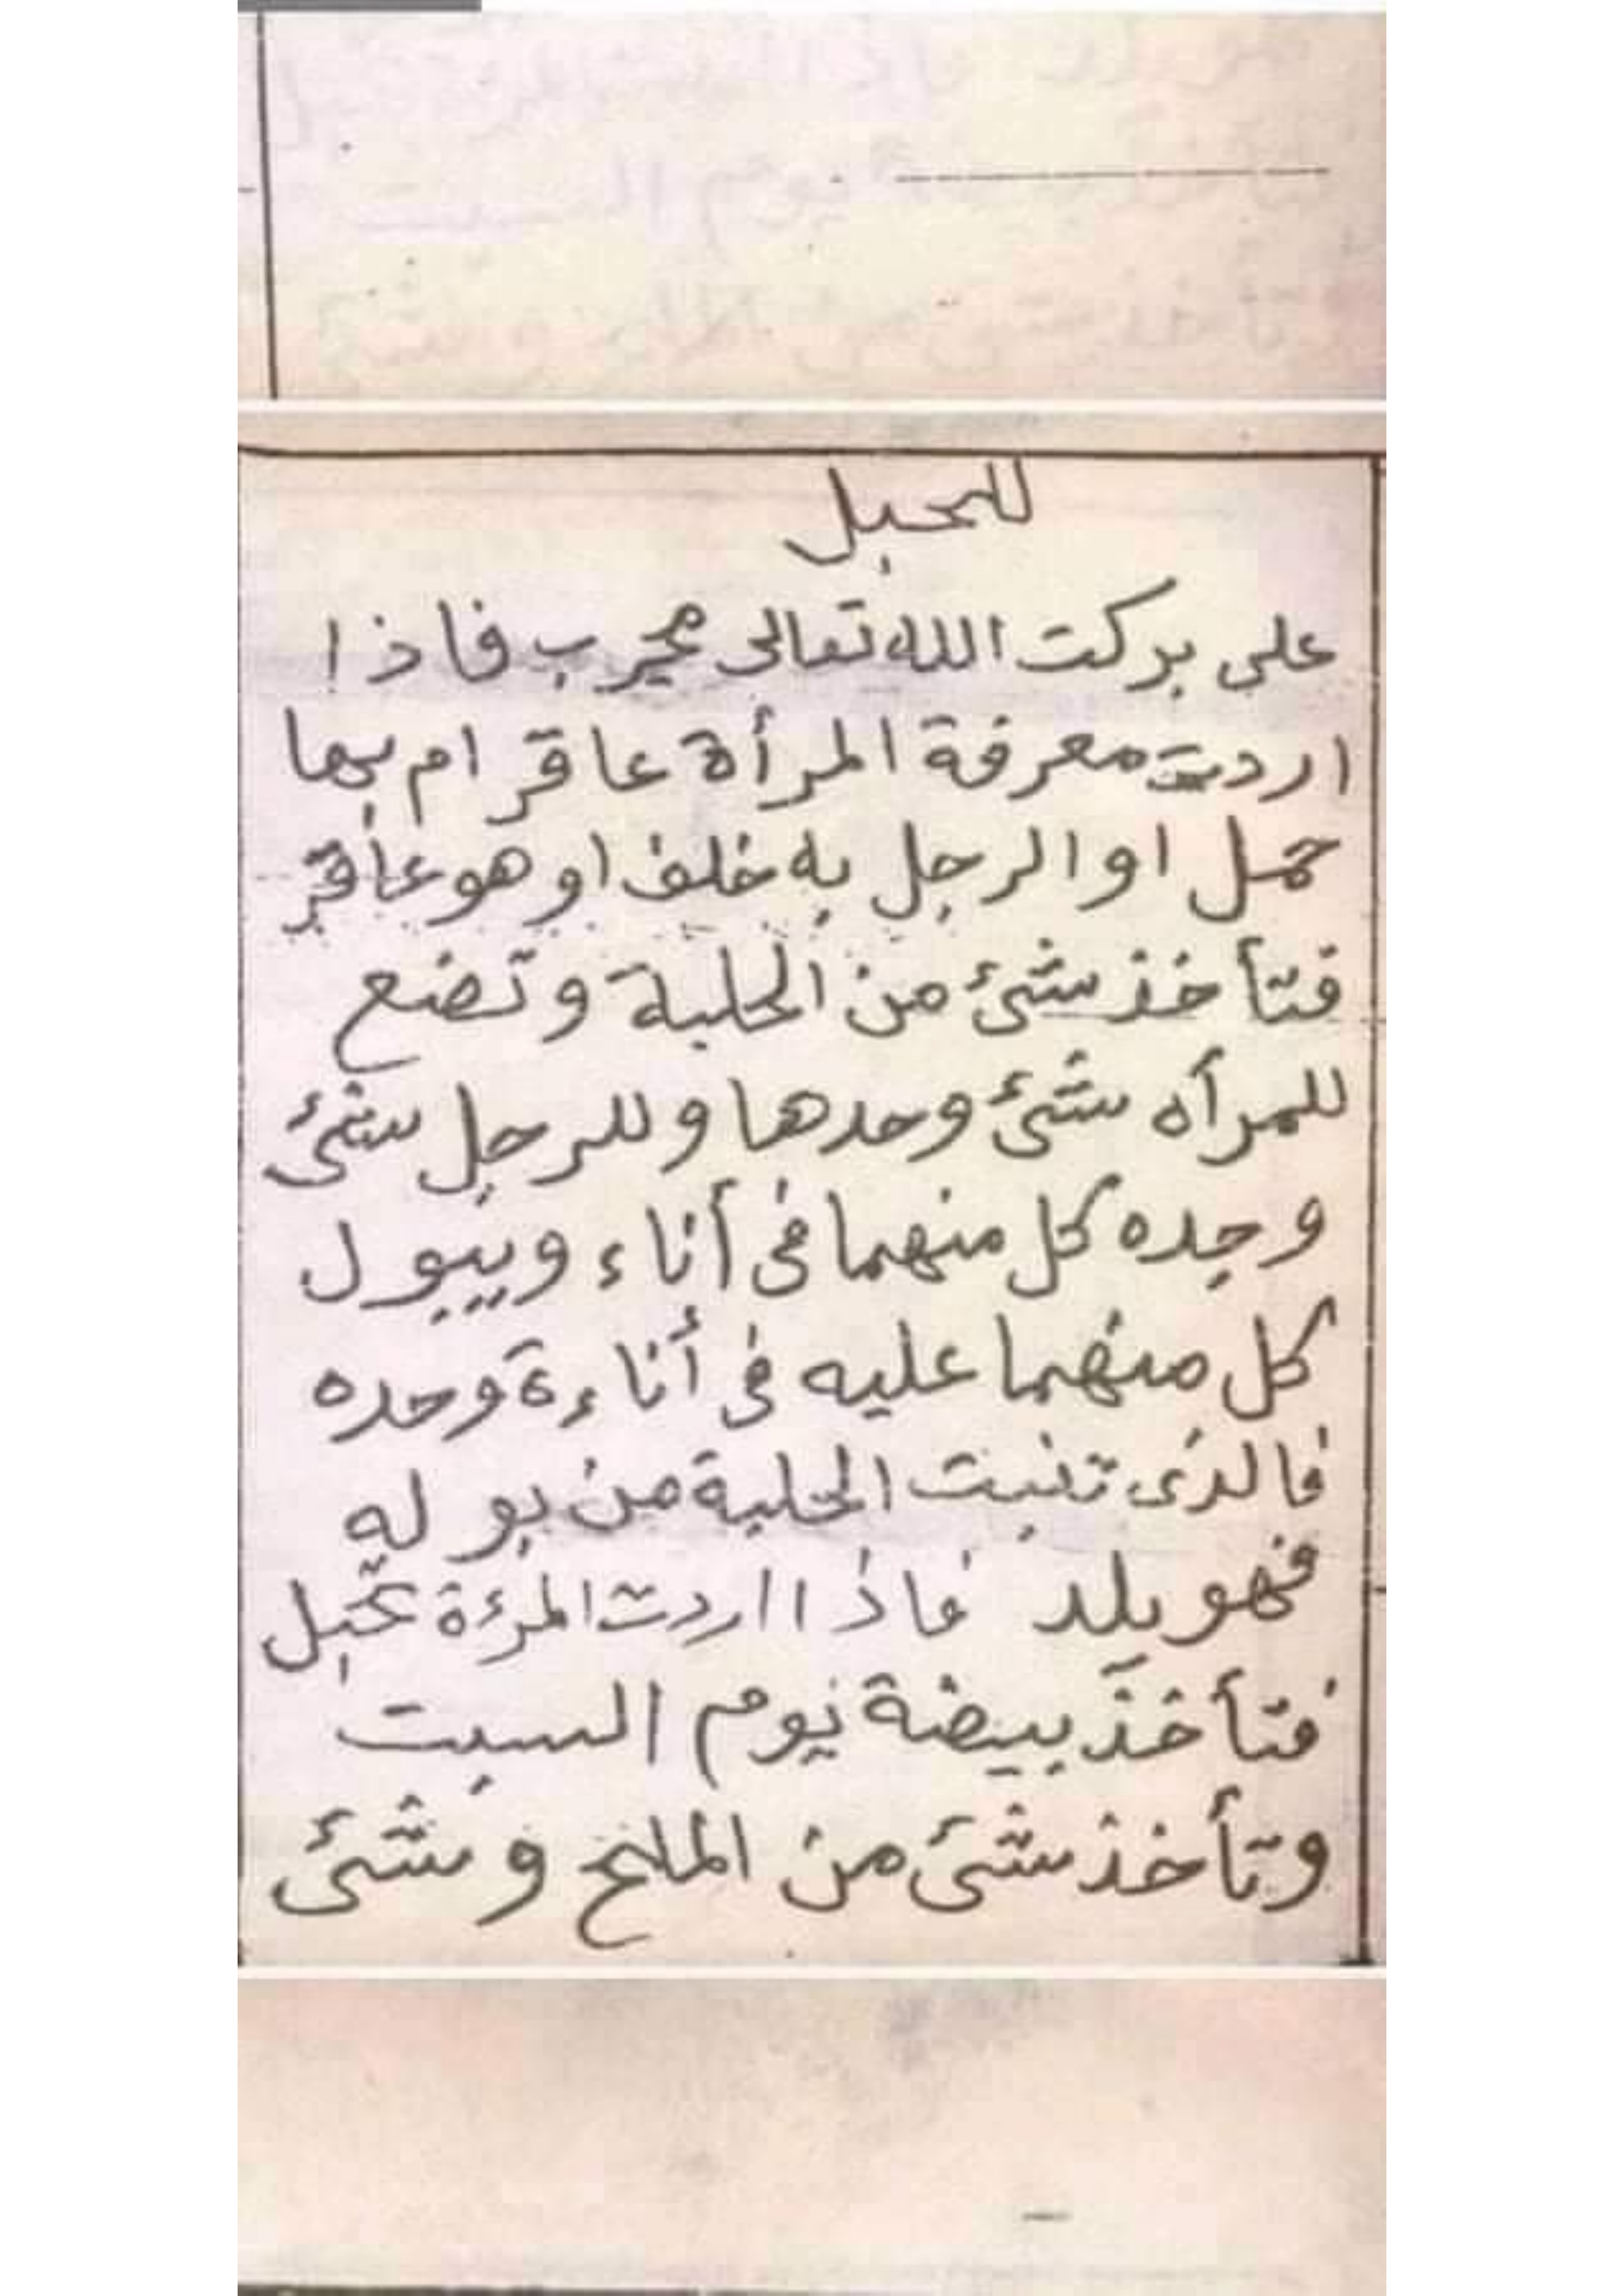 للحبل
على بركت الله تعالى مجرب فاذا
اردت معرفة المرأة عاقر ام بها
حمل او الرجل به خلف او هو عاقر
فتأخذ شئ من الحلبة وتضع
للمرأه شئ وحدها وللرجل شئ
وحده كل منهما فى أناء ويبول
كل منهما عليه فى أناءة وحده
فالذى تنبت الحلبة من بوله
فهو يلد فاذا اردت المرءة تحبل
فتأخذ بيضة يوم السبت
وتأخذ شئ من الملح و شئ